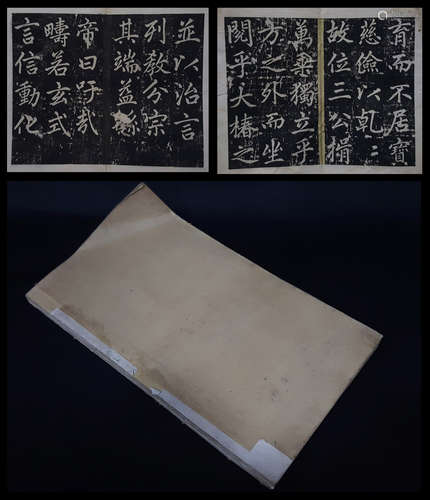 並以治言
列教分宗
其端益
帝曰吁哉
疇若玄式
言信動化
而不居寶
慈儉以乹〻
故位三公揖
萬乗獨立乎
方之外而坐
閱乎大椿之